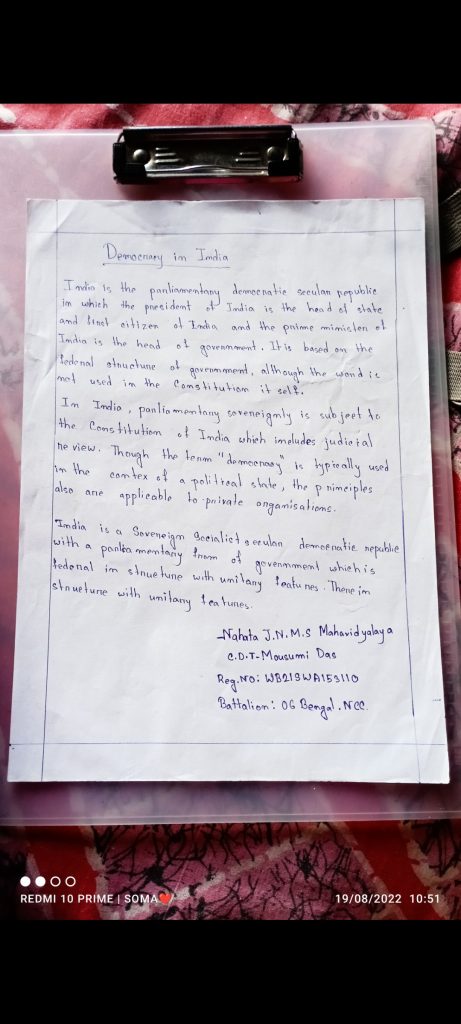 Democracy in India
India is the parliamentary democratic secular republic
in which the president of India is the head of state
and first citizen of India and the prime minister of
India is the head of government. It is based on the
federal structure of government, although the word is
not used in the Constitution it self.
In India, parliamentary sovereignly is subject to
the Constitution of India which includes judicial
review. Though the term "democracy" is typically used
in the contex of a political state, the principles
also are applicable to private organisations.
India is a Sovereign Socialist secular democratic republic
with a parliamentary from of government which is
federal in structure with unitary features. There in
structure with unitary features.
-Nahata J.N.M.S Mahavidyalaya
C.D.T-Mousumi Das
Reg.NO: WB21SWA153110
Battalion: 06 Bengal. NCC.
REDMI 10 PRIME | SOMA❤️/
19/08/2022 10:51